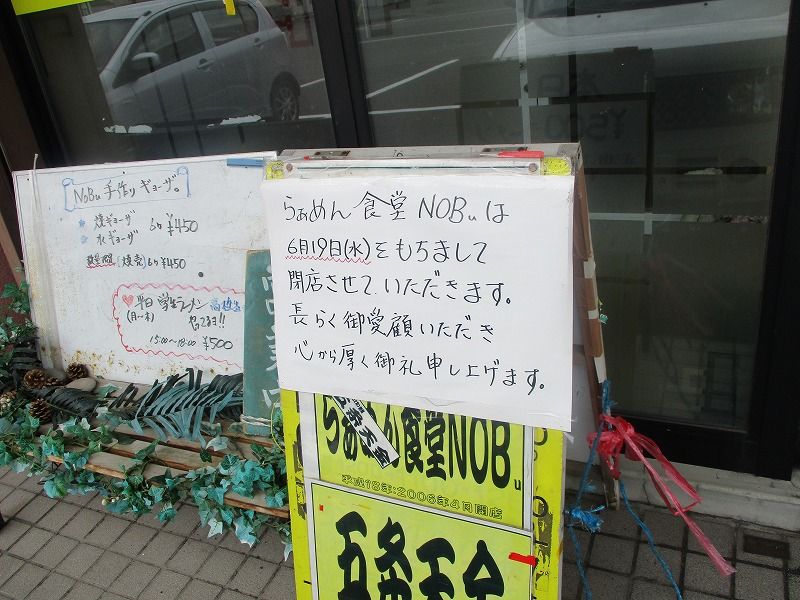 NOBu 手作りギョーザ。
焼ギョーザ 6ヶ ¥450
水ギョーザ
(焼売) 6ヶ ¥450
平日 学生ラーメン
(月〜木)
15:00〜18:00 ¥500
らぁめん 食堂 NOBu は
6月19日(水)をもちまして
閉店させていただきます。
長らく御愛顧いただき
心から厚く御礼申し上げます。
らぁめん食堂NOBu
平成18年:2006年4月開店